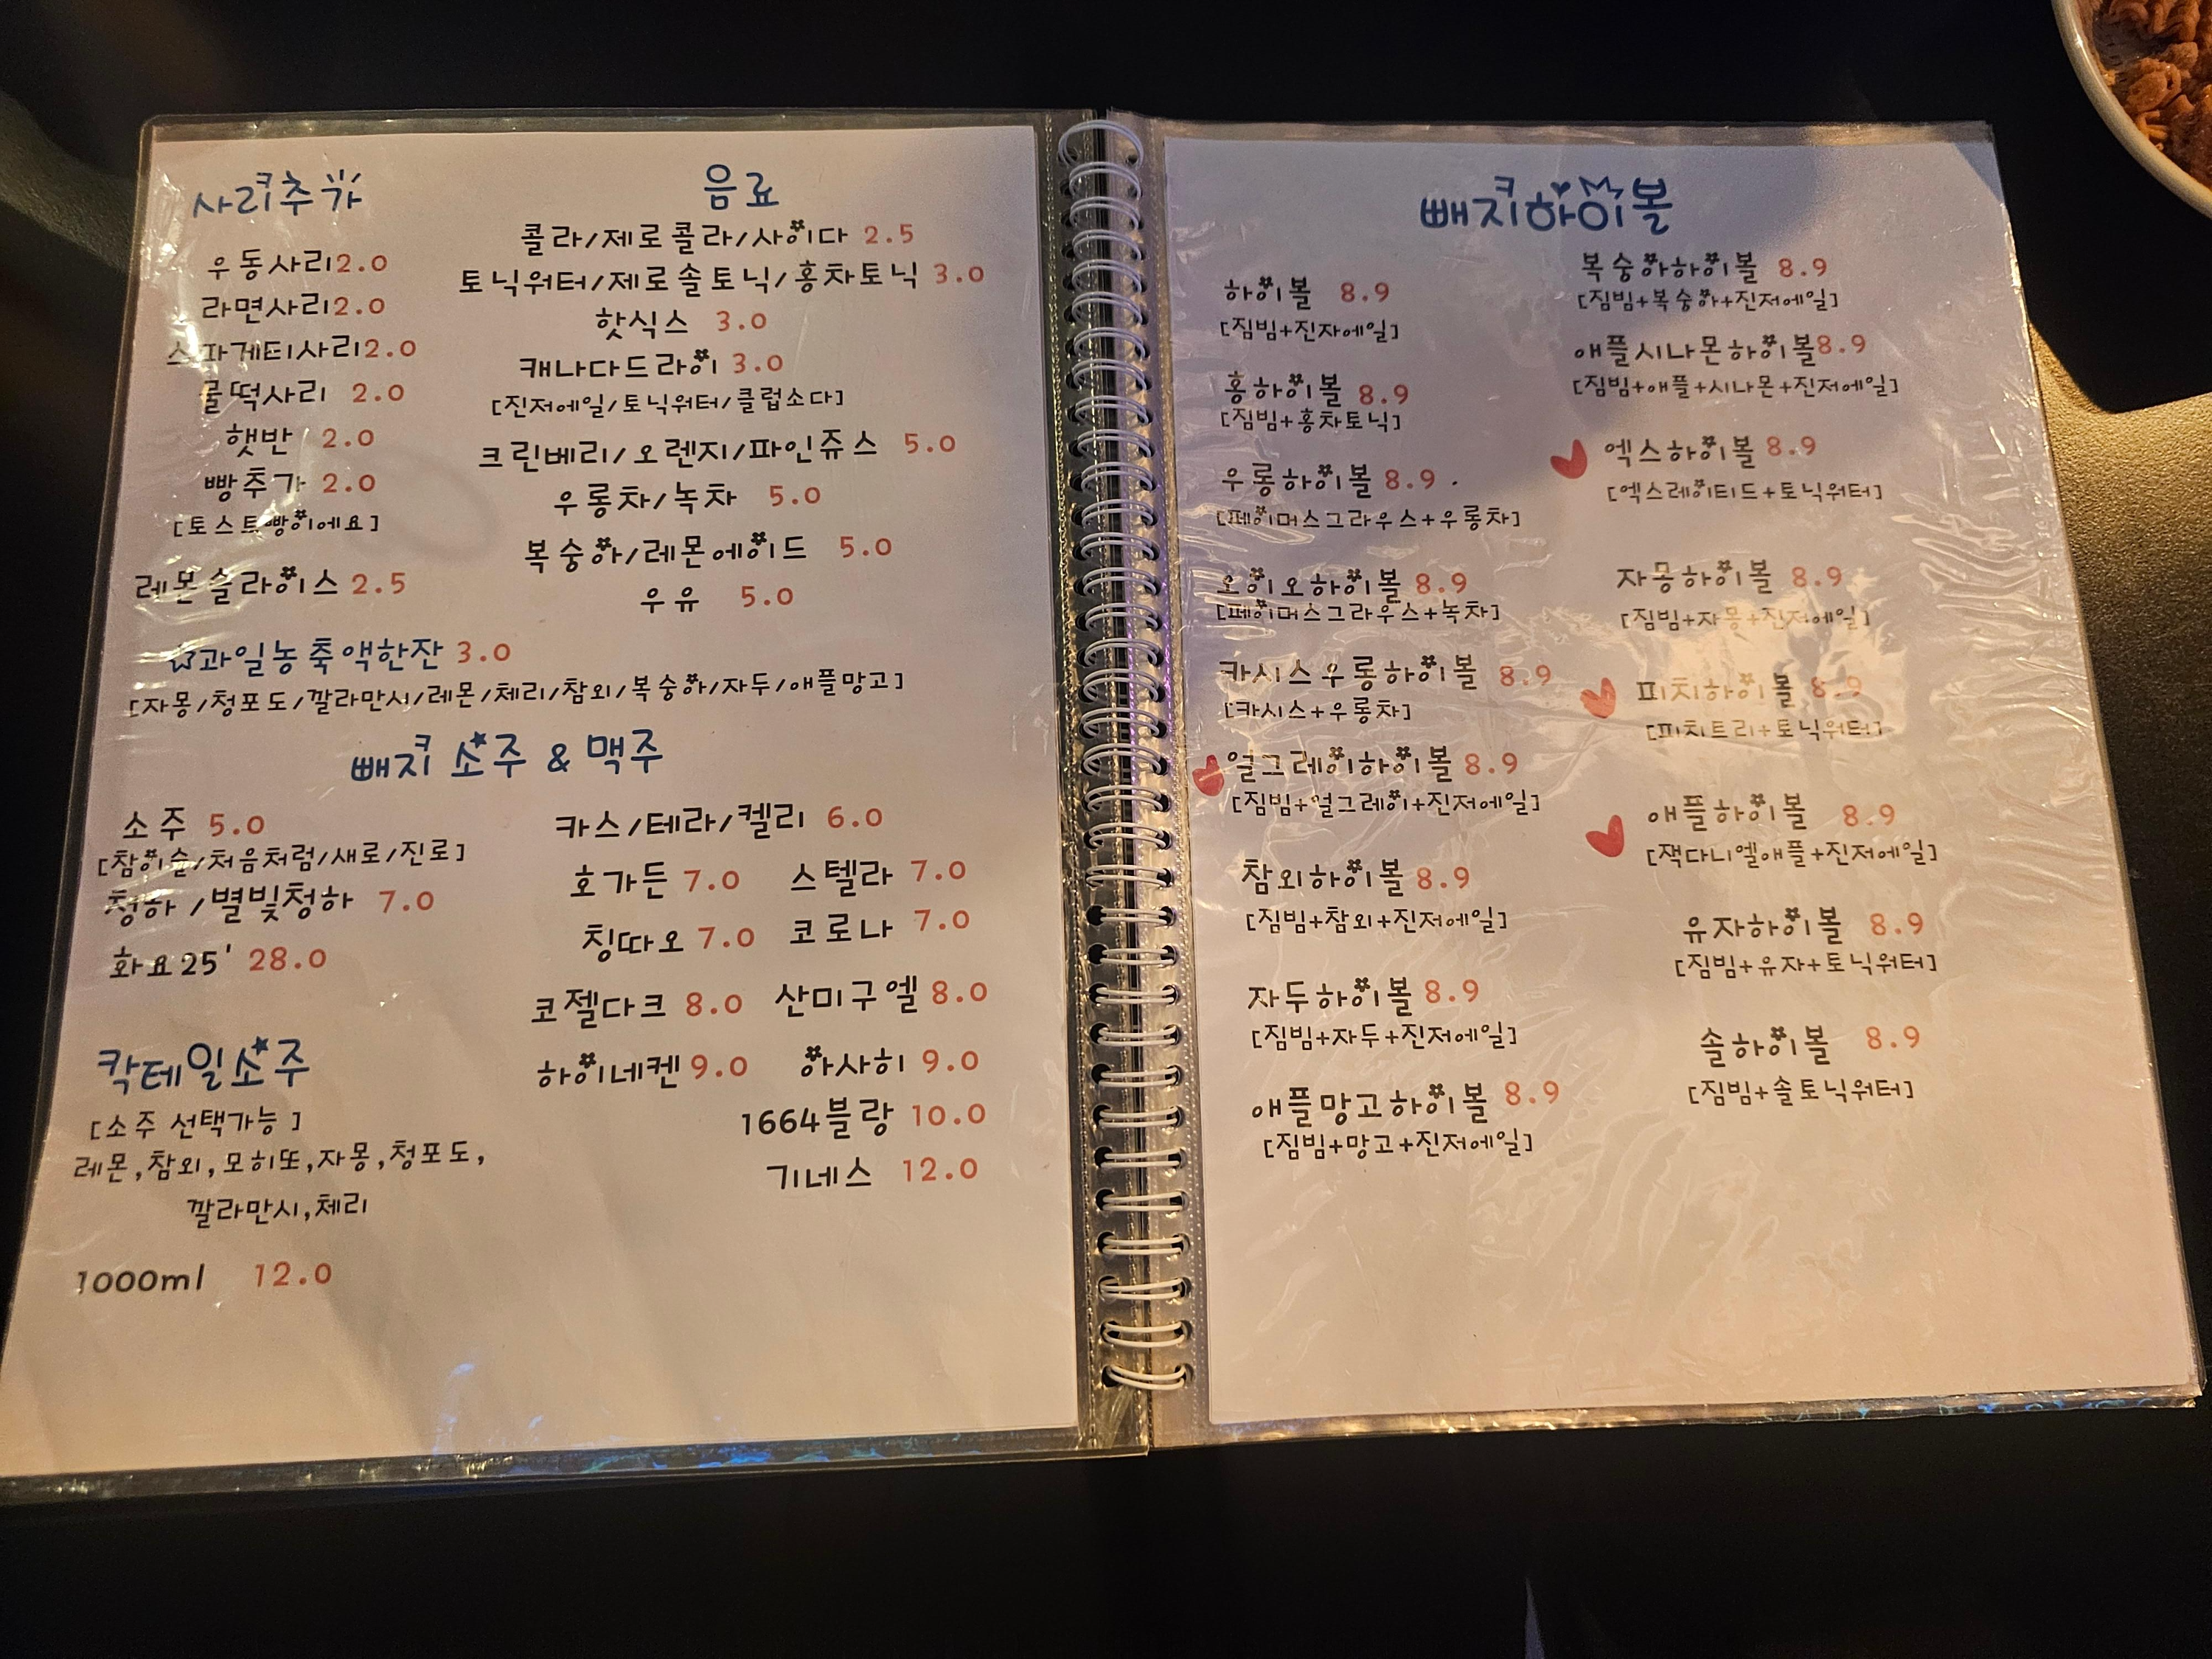 사리추가
우동사리2.0
라면사리2.0
스파게티사리2.0
물떡사리 2.0
햇반 2.0
빵추가 2.0
[토스트빵이에요]
레몬슬라이스 2.5
음료
콜라/제로콜라/사이다 2.5
토닉워터/제로솔토닉/홍차토닉 3.0
핫식스 3.0
캐나다드라이 3.0
[진저에일/토닉워터/클럽소다]
크린베리/오렌지/파인쥬스 5.0
우롱차/녹차 5.0
복숭아/레몬에이드 5.0
우유 5.0
☆과일농축액한잔 3.0
[자몽/청포도/깔라만시/레몬/체리/참외/복숭아/자두/애플망고]
빼지 소주 & 맥주
소주 5.0
[참이슬/처음처럼/새로/진로]
청하/별빛청하 7.0
화요25' 28.0
칵테일소주
[소주 선택가능]
레몬,참외,모히또,자몽,청포도,
깔라만시,체리
1000ml 12.0
카스/테라/켈리 6.0
호가든 7.0 스텔라 7.0
칭따오 7.0 코로나 7.0
코젤다크 8.0 산미구엘 8.0
하이네켄 9.0 아사히 9.0
1664블랑 10.0
기네스 12.0
빼지하이볼
하이볼 8.9
[짐빔+진자에일]
홍하이볼 8.9
[짐빔+홍차토닉]
우롱하이볼 8.9
[페이머스그라우스+우롱차]
오이오하이볼 8.9
[페이머스그라우스+녹차]
카시스우롱하이볼 8.9
[카시스+우롱차]
얼그레이하이볼 8.9
[짐빔+얼그레이+진저에일]
참외하이볼 8.9
[짐빔+참외+진저에일]
자두하이볼 8.9
[짐빔+자두+진저에일]
애플망고하이볼 8.9
[짐빔+망고+진저에일]
복숭아하이볼 8.9
[짐빔+복숭아+진저에일]
애플시나몬하이볼8.9
[짐빔+애플+시나몬+진저에일]
엑스하이볼 8.9
[엑스레이티드+토닉워터]
자몽하이볼 8.9
[짐빔+자몽+진저에일]
피치하이볼 8.9
[피치트리+토닉워터]
애플하이볼 8.9
[잭다니엘애플+진저에일]
유자하이볼 8.9
[짐빔+유자+토닉워터]
솔하이볼 8.9
[짐빔+솔토닉워터]